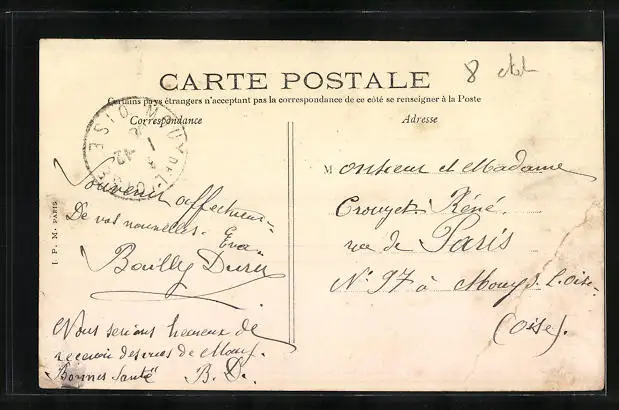 8 oct
CARTE POSTALE
Certains pays étrangers n'acceptant pas la correspondance de ce côté se renseigner à la Poste
Correspondance
Adresse
MOUY DE L'OISE
OISE
Souvenir affectueux
De vos nouvelles. Eva
Bailly Duru
Nous serions heureux de
recevoir des vues de Mouy.
Bonnes Santé B. D.
I. P. M. PARIS
Monsieur et Madame
Crouzet Réné.
rue de Paris
N° 97 à Mouy s. l. Oise
(Oise).